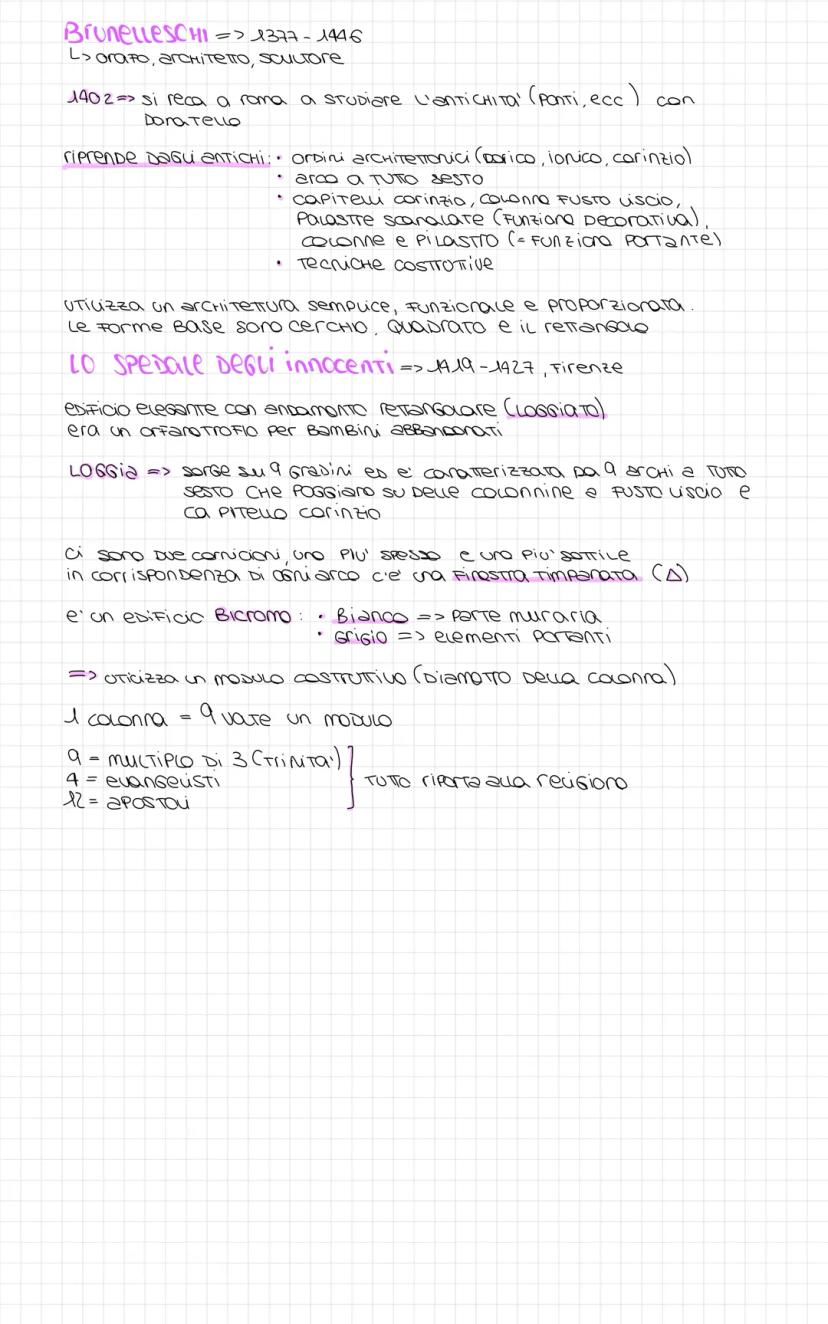 Brunelleschi => 1377-1446
↳ orafo, architetto, scultore
1402 => si reca a roma a studiare l'antichita' (ponti, ecc) con
Donatello
riprende dagli antichi: • ordini architettonici (dorico, ionico, corinzio)
• arco a tutto sesto
• capitelli corinzio, colonna fusto liscio,
palastre scanalate (funziona decorativa),
colonne e pilastro (= funziona portante)
• tecniche costruttive
utilizza un architettura semplice, funzionale e proporzionata.
le forme base sono cerchio, quadrato e il rettangolo
Lo spedale degli innocenti => 1419-1427, Firenze
edificio elegante con andamento rettangolare (loggiato)
era un orfanotrofio per bambini abbandonati
Loggia => sorge su 9 gradini ed e' caratterizzata da 9 archi a tutto
sesto che poggiano su delle colonnine a fusto liscio e
capitello corinzio
ci sono due cornicioni, uno piu' spesso e uno piu' sottile
in corrispondenza di ogni arco c'e' una finestra timpanata (△)
e' un edificio bicromo: • Bianco => parte muraria
• Grigio => elementi portanti
=> utilizza un modulo costruttivo (diametro della colonna)
1 colonna = 9 volte un modulo
9 = multiplo di 3 (trinita')
4 = evangelisti
12 = apostoli
} tutto riporta alla religione